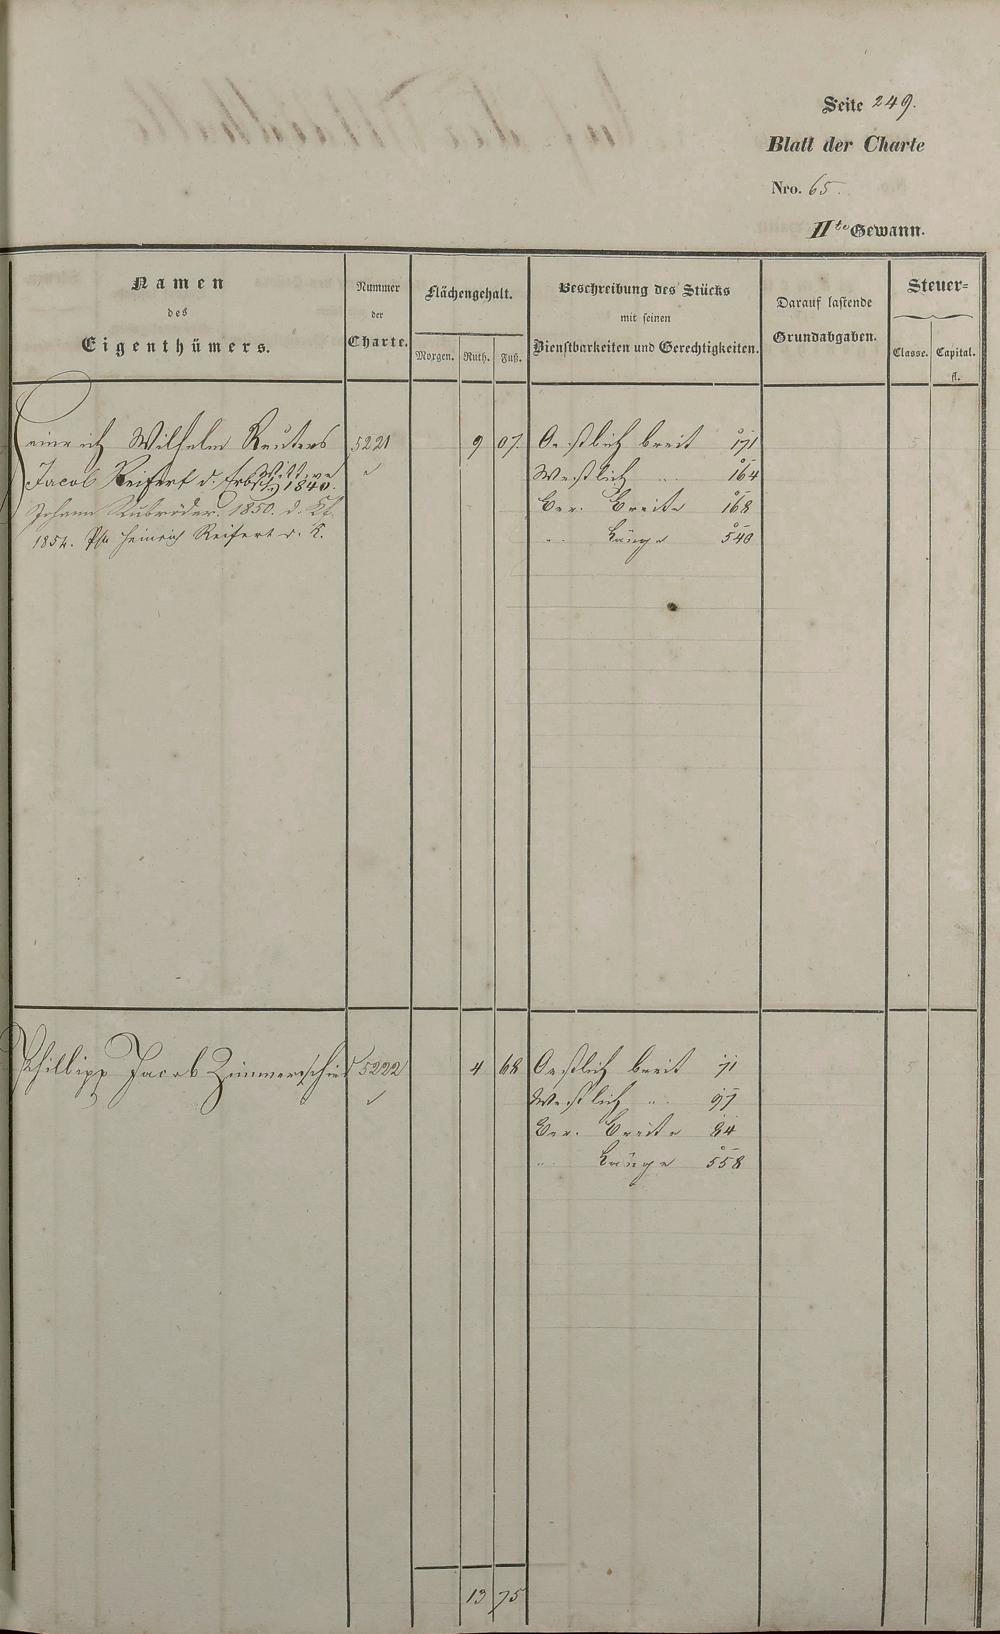 Seite 249.
Blatt der Charte
Nro. 65.
IIte Gewann.
Namen
des
Eigenthümers.
Nummer
der
Charte.
Flächengehalt.
Morgen. Ruth. Fuß.
Beschreibung des Stücks
mit seinen
Dienstbarkeiten und Gerechtigkeiten.
Darauf lastende
Grundabgaben.
Steuer=
Classe. Capital.
fl.
Heinrich Wilhelm Reuters 5221 9 07. Oestlich breit 171
Wittwe
Jacob Reifert d. Erbsch. 1840. Westlich " 164
Johann 1850. d. Kf. Ver. Breite 168
1854. Ph. Heinrich Reifert d. K. " Länge 540
Phillipp Jacob Zimmerschied 5222 4 68 Oestlich breit 71
Westlich " 97
Ver. Breite 84
" Länge 558
13 75